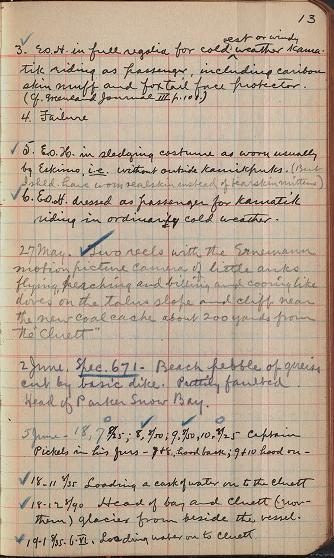 13
est or windy
3. E.O.H. in full regalia for cold weather Kama-
tik riding as passenger, including caribou
skin muff and foxtail face protector.
(Cf. Greenland Journal III, p. 108.)
4. Failure
✓ 5. E.O.H. in sledging costume as worn usually
by Eskimo, i.e. without outside kamikpuks. (But
should have worn sealskin instead of bearskin mittens)
✓ 6. E.O.H. dressed as passenger for kamatik
riding in ordinary cold weather.
27 May. ✓ Two reels with the Ernemann
motion picture camera of little auks
flying, perching and billing and cooing like
doves on the talus slope and cliff near
the new coal cache about 200 yards from
the "Cluett"
2 June. Spec. 671 - Beach pebble of gneiss
cut by basic dike. Prettily faulted
Head of Parker Snow Bay.
5 June - 18, 7 /25; 8, /50; 9, /50, 10, /25 Captain
Pickels in his furs - 7+8, hood back; 9+10 hood on -
✓ 18-11 /35 Loading a cask of water on to the Cluett
✓ 18-12 5/90 Head of bay and Cluett (nor-
thern) glacier from beside the vessel.
✓ 19-1 /35. 6-VI. Loading water on to Cluett